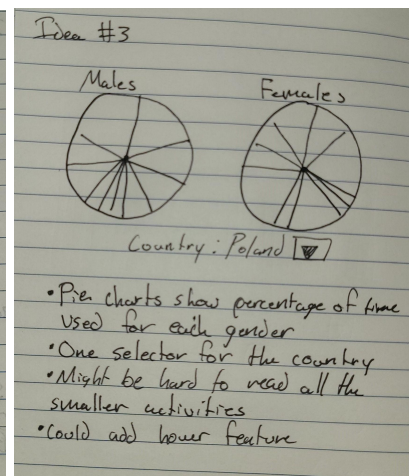 Idea #3
Males Females
Country: Poland
• Pie charts show percentage of time
used for each gender
• One selector for the country
• Might be hard to read all the
smaller activities
• Could add hover feature